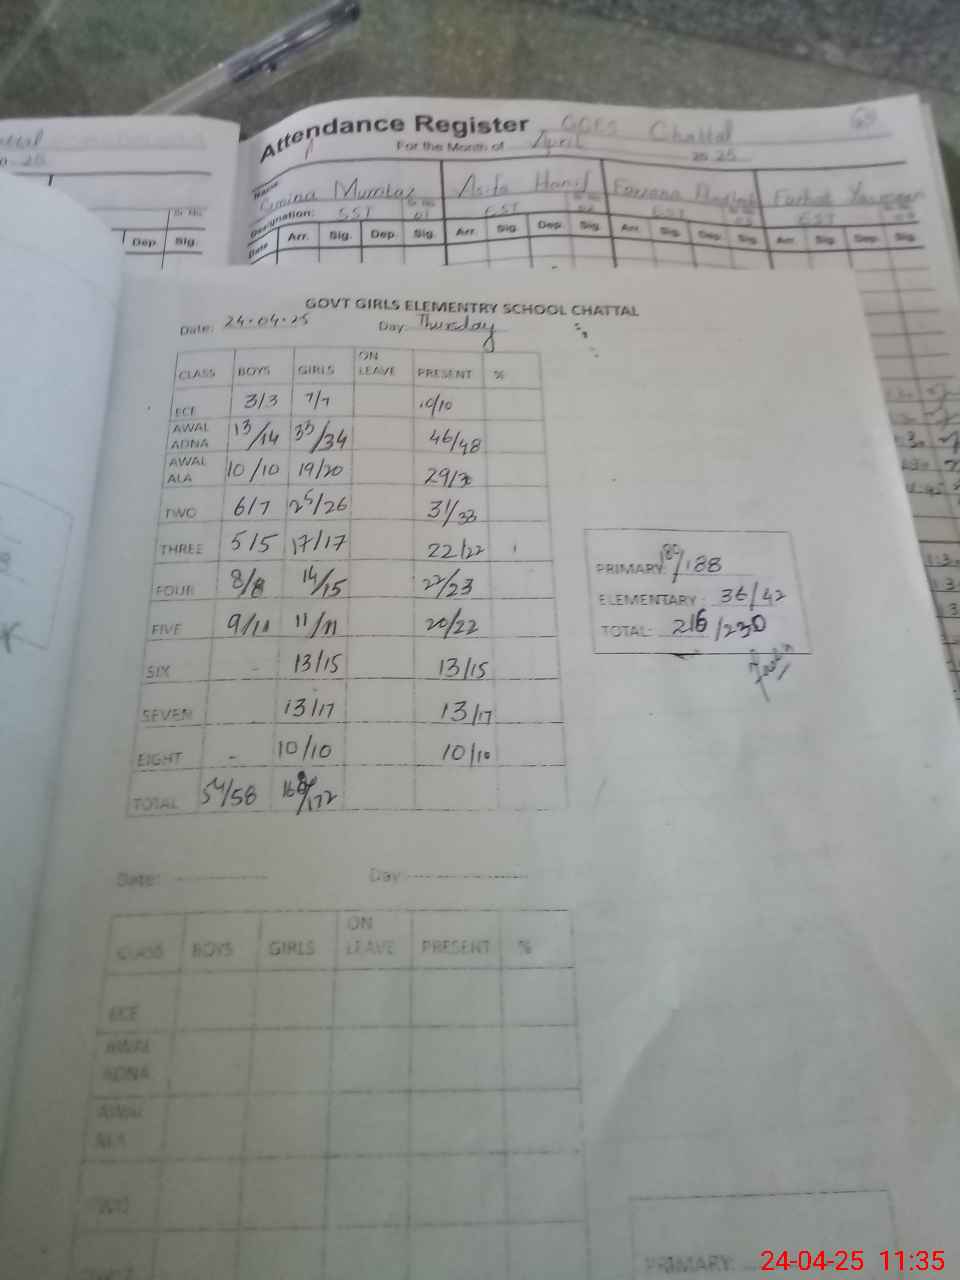 Attendance Register GGES Chattal 69
For the Month of April 20 25
Name Amina Mumtaz Asifa Hanif Farzana Farhat
Designation: SST 01 EST EST EST
Date Arr. Sig. Dep. Sig. Arr. Sig. Dep. Sig. Arr. Sig. Dep. Sig. Arr. Sig. Dep. Sig.
Sr. No.
Dep. Sig.
GOVT GIRLS ELEMENTRY SCHOOL CHATTAL
Date: 24.04.25 Day: Thursday
CLASS BOYS GIRLS ON LEAVE PRESENT %
ECE 3/3 7/7 10/10
AWAL ADNA 13/14 33/34 46/48
AWAL ALA 10/10 19/20 29/30
TWO 6/7 25/26 31/33
THREE 5/5 17/17 22/22
FOUR 8/8 14/15 22/23
FIVE 9/11 11/11 20/22
SIX - 13/15 13/15
SEVEN 13/17 13/17
EIGHT - 10/10 10/10
TOTAL 54/58 /172
PRIMARY: /188
ELEMENTARY: 36/42
TOTAL: 216/230
Date: Day
CLASS BOYS GIRLS ON LEAVE PRESENT %
ECE
AWAL ADNA
AWAL ALA
TWO
PRIMARY:
24-04-25 11:35